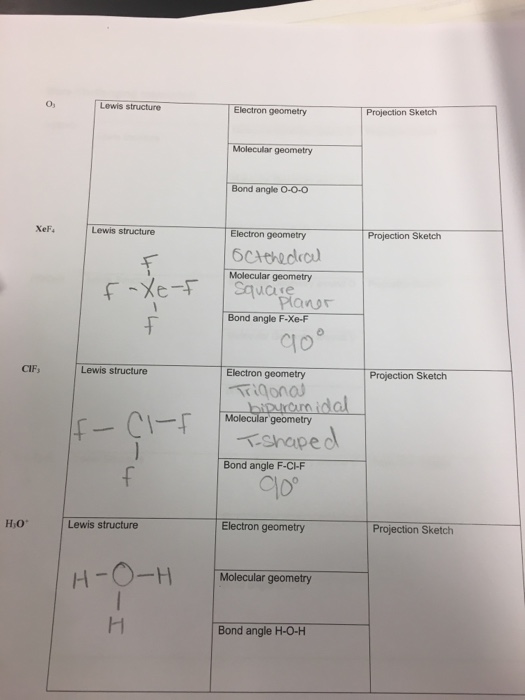 O₃
Lewis structure
Electron geometry
Projection Sketch
Molecular geometry
Bond angle O-O-O
XeF₄
Lewis structure
Electron geometry
Projection Sketch
F
F - Xe - F
F
Octehedral
Molecular geometry
Square
Planer
Bond angle F-Xe-F
90°
ClF₃
Lewis structure
Electron geometry
Projection Sketch
F - Cl - F
F
Trigonal
bipyramidal
Molecular geometry
T-shaped
Bond angle F-Cl-F
90°
H₃O⁺
Lewis structure
Electron geometry
Projection Sketch
H - O - H
H
Molecular geometry
Bond angle H-O-H